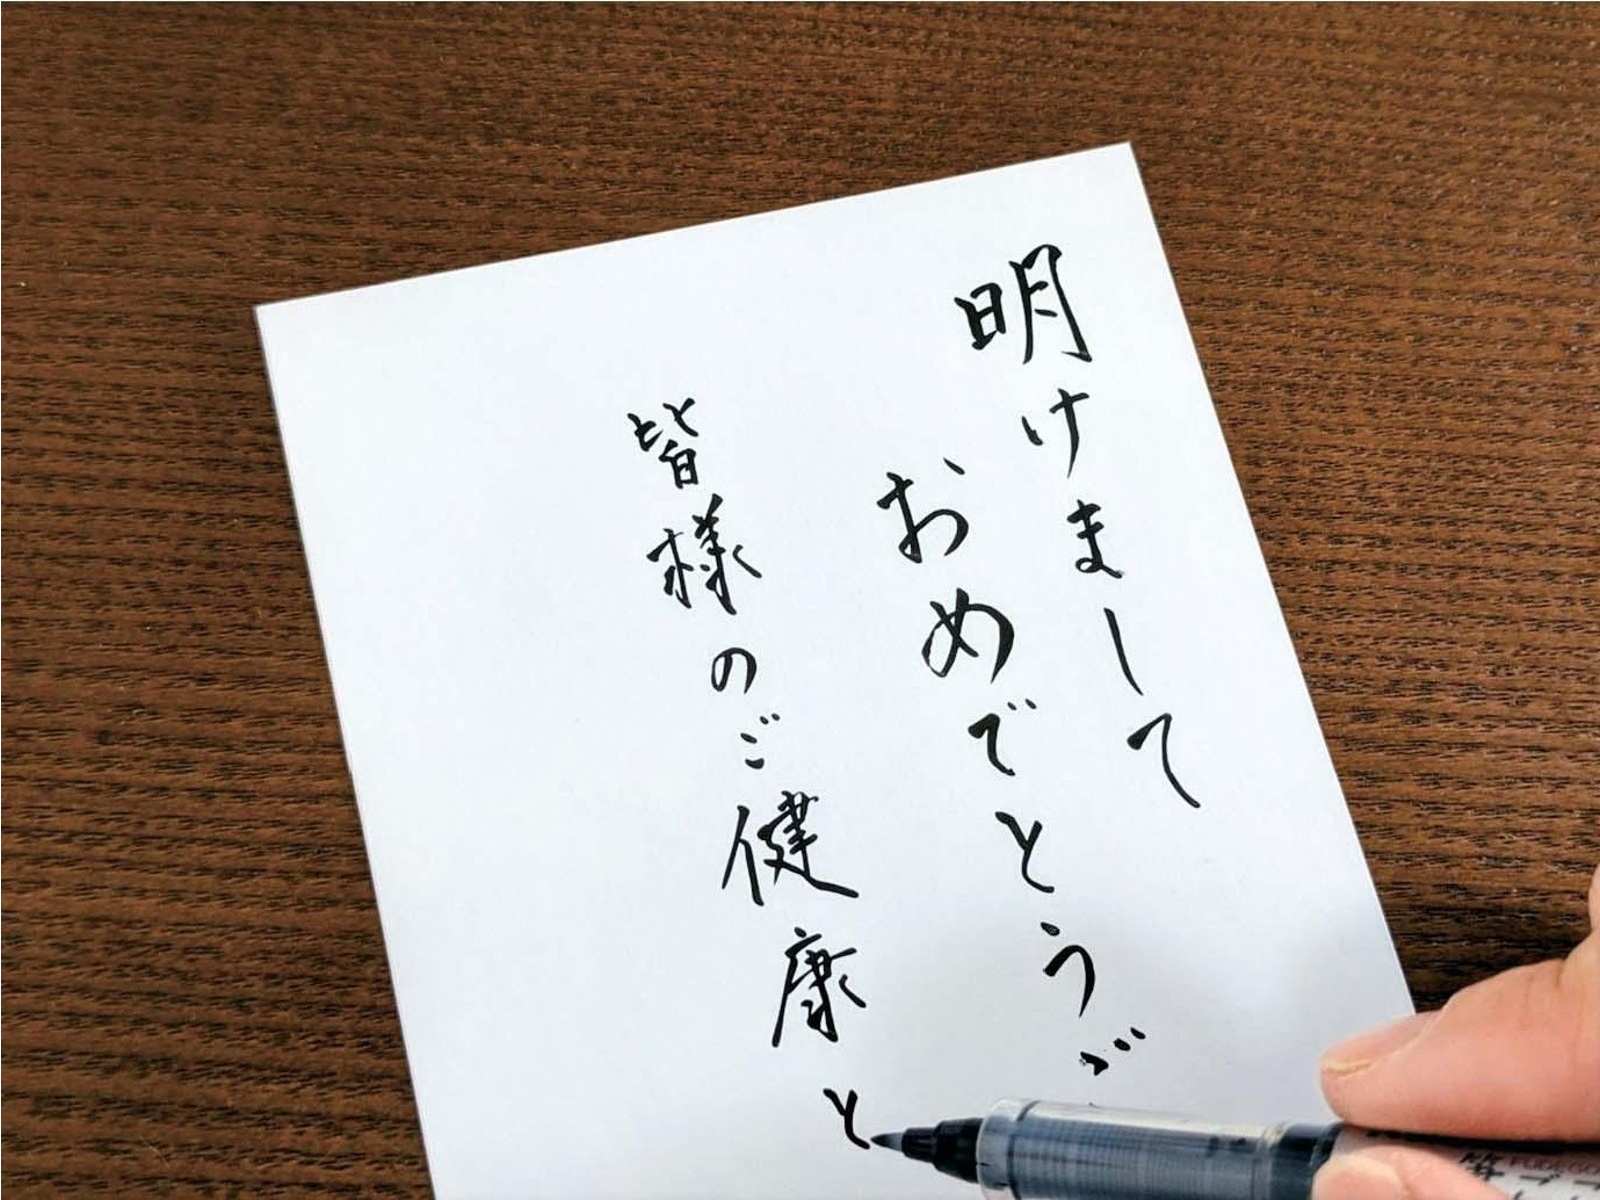 明けまして
おめでとうご
皆様のご健康と